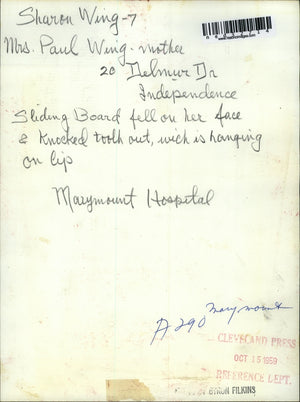 Sharon Wing-7
Mrs. Paul Wing - mother
20 Delmur Dr
Independence
Sliding Board fell on her face
& knocked tooth out, wich is hanging
on lip
Marymount Hospital
Marymount
A 290
CLEVELAND PRESS
OCT 15 1959
REFERENCE DEPT.
BYRON FILKINS